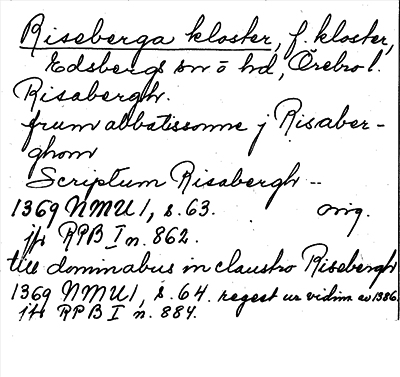 Riseberga kloster, f. kloster,
Edsbergs sn o hd, Örebro l.
Risabergh.
frum abbatissonne j Risaber-
ghom
Scriptum Risabergh --
1369 NMU 1, s. 63. orig.
jfr RPB I n. 862.
till dominabus in claustro Risebergh
1369 NMU 1, s. 64. regest ur vidim. av 1386.
jfr RPB I n. 884.